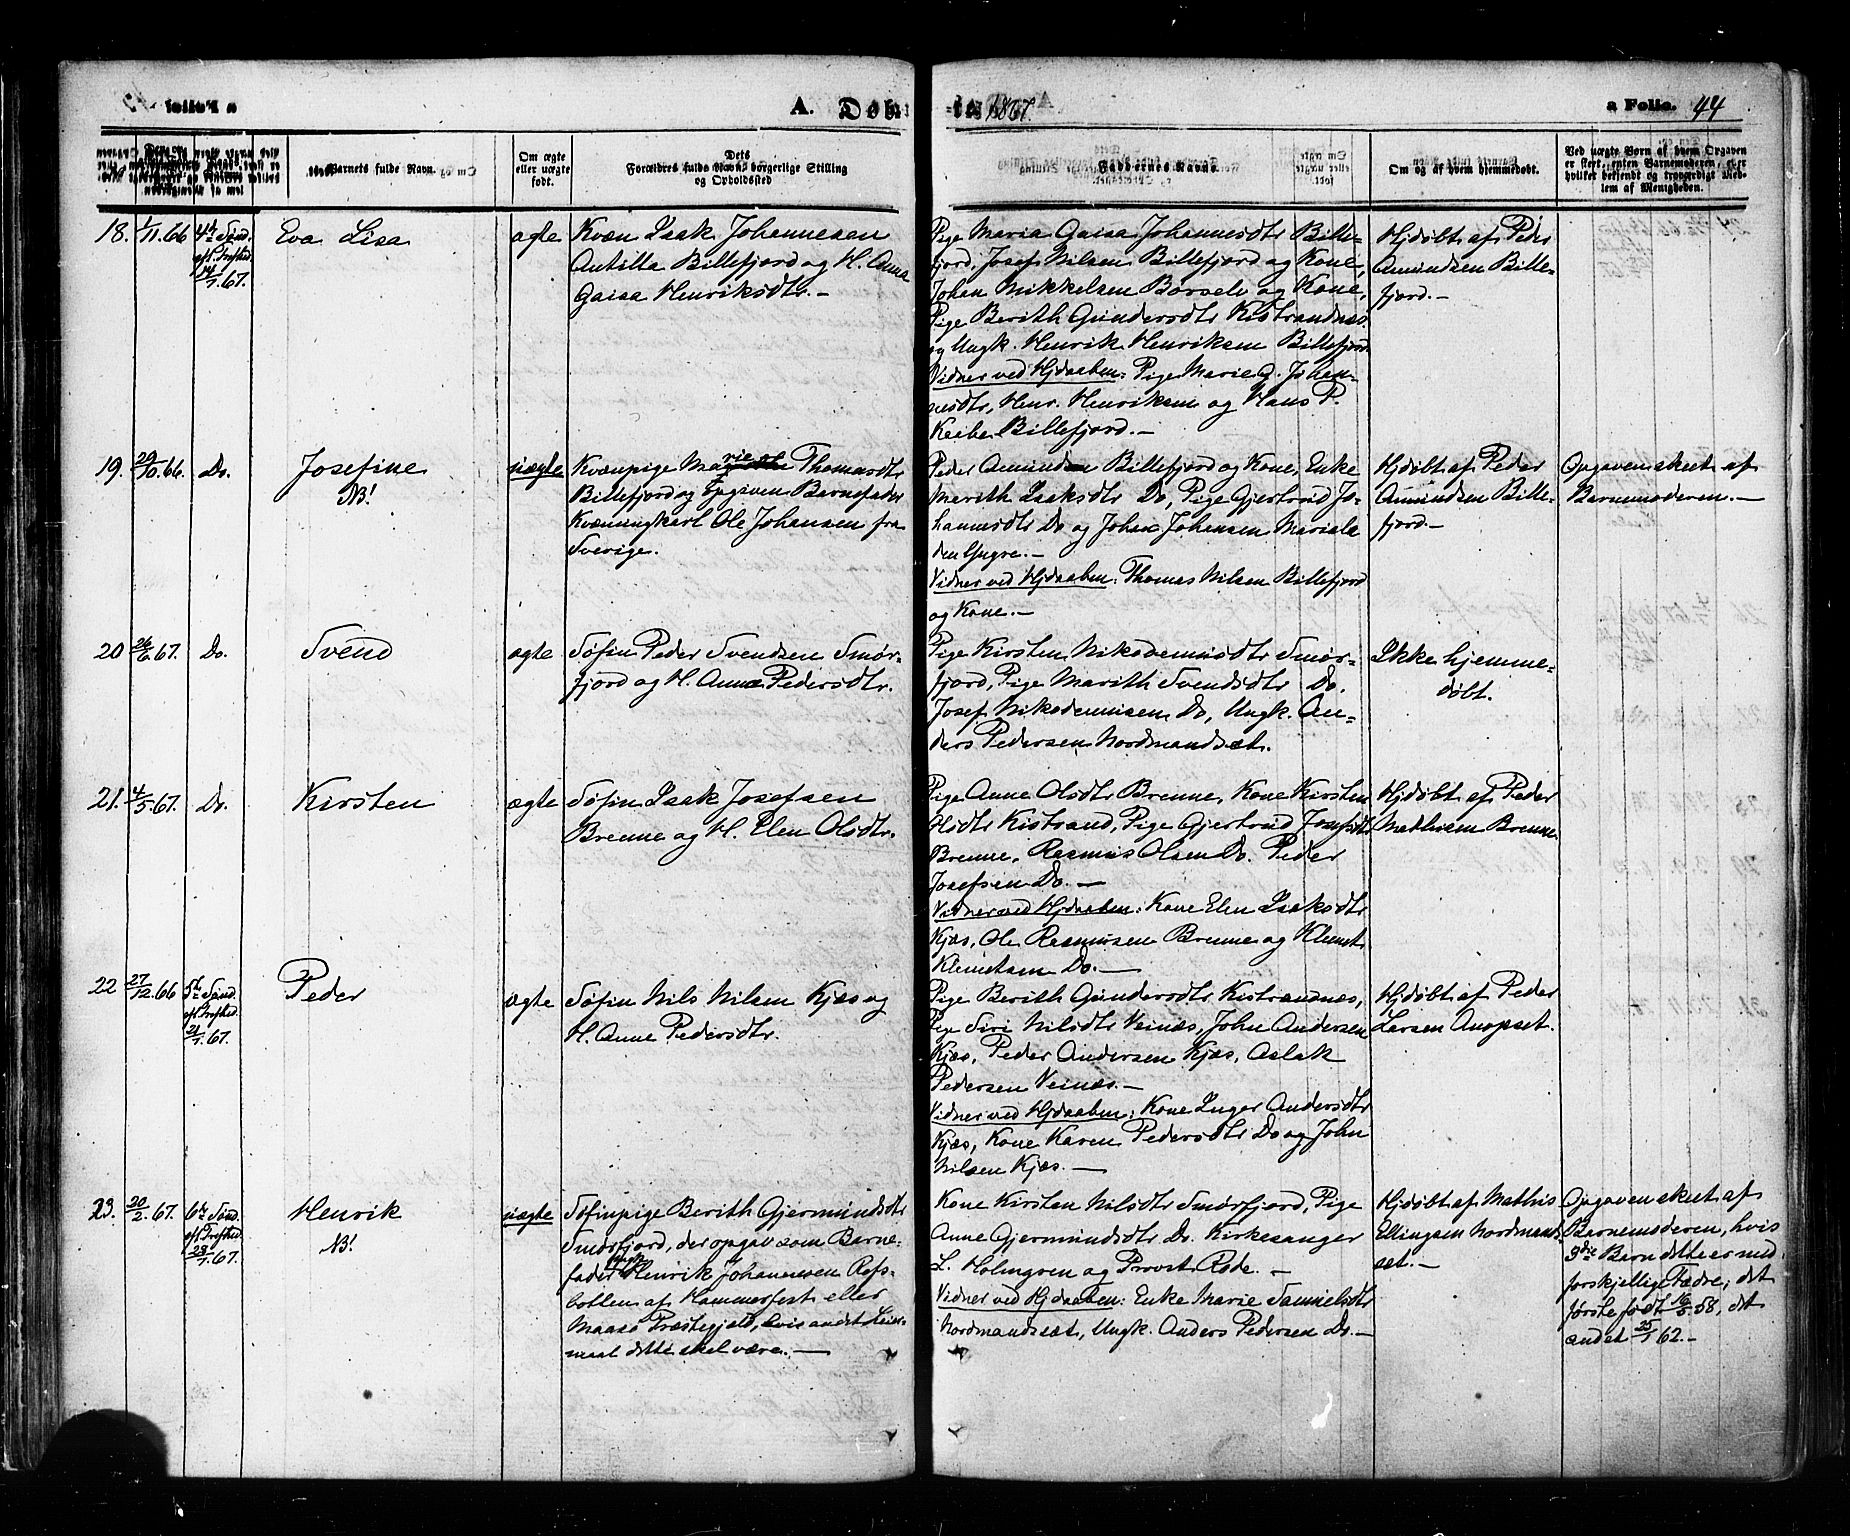 A. Døbte 1867. a Folio. 44
Barnets fulde Navn.
Om ægte eller uægte født.
Dets Forældres fulde Navne, borgerlige Stilling og Opholdssted
Faddernes Navne.
Om og af hvem hjemmedøbt.
Ved uægte Børn af hvem Opgaven er skeet, enten Barnemoderen, eller hvilket bekjendt og troværdigt Medlem af Menigheden.
18. 1/11.66
4de Sønd.
eft. Trefhed.
14/7.67.
Eva Lisa
ægte
Kvæn Isak Johannesen
Antilla Billefjord og H. Anna
Gaisa Henriksdtr.-
Pige Maria Gaisa Johannesdtr Bille-
fjord, Josef Nilsen Billefjord og Kone,
Johan Mikkelsen Børselv og Kone,
Pige Berith Gundersdtr Kistrandnæs
og Ungk. Henrik Henriksen Billefjord
Vidner ved Hjdaaben: Pige Marie G. Johan-
nesdtr, Henr. Henriksen og Hans P.
Billefjord.-
Hjdøbt af Peder
Amundsen Bille-
fjord.-
19. 29/10.66.
Do.
Josefine
NB!
uægte
Kvænpige Marie Thomasdtr
Billefjord og opgaven Barnefader
Kvænungkarl Ole Johansen fra
Sverige.
Peder Amundsen Billefjord og Kone, Enke
Marith Isaksdtr Do, Pige Gjertrud Jo-
hannesdtr Do og Johan Johansen
den Yngre.-
Vidner ved Hjdaaben: Thomas Nilsen Billefjord
og Kone.-
Hjdøbt af Peder
Amundsen Bille-
fjord-
Opgaven skeet af
Barnemoderen.-
20 26/6.67.
Do.
Svend
ægte
Søfin Peder Svendsen Smør-
fjord og H. Anna Pedersdtr.
Pige Kirsten Nikodemusdtr Smør-
fjord, Pige Marith Svendsdtr Do.
Josef Nikodemusen Do, Ungk. An-
ders Pedersen Nordmandsæt.
Ikke hjemme-
døbt.
21. 4/5.67.
Do.
Kirsten
ægte
Søfin Isak Josefsen
Brenne og H. Elen Olsdtr.
Pige Anne Olsdtr Brenne, Kone Kirsten
Olsdtr Kistrand, Pige Gjertrud Josefsdtr
Brenne, Rasmus Olsen Do. Peder
Josefsen Do.-
Vidner ved Hjdaaben: Kone Elen Isaksdtr
Kjæs, Ole Rasmusen Brenne og Klemet
Klemetsen Do.-
Hjdøbt af Peder
Mathisen Brenne
22 27/12.66
5te Sønd.
eft. Trefhed.
21/7.67.
Peder
ægte
Søfin Nils Nilsen Kjæs og
H. Anne Pedersdtr.
Pige Berith Gundersdtr Kistrandnæs,
Pige Siri Nilsdtr Veinæs, John Andersen
Kjæs, Peder Andersen Kjæs, Aslak
Pedersen Veinæs.-
Vidner ved Hjdaaben: Kone Inger Andersdtr
Kjæs, Kone Karen Pedersdtr Do og John
Nilsen Kjæs.-
Hjdøbt af Peder
Larsen Anopset.
23. 20/2.67.
6te Sønd.
eft. Trefhed.
28/7.67.
Henrik
NB!
uægte
Søfinpige Berith Gjermundsdtr
Smørfjord, der opgav som Barne-
fader Ungk. Henrik Johannesen Refs-
botten af Hammerfest eller
Maasø Præstegjeld, hvis andet Leier-
maal dette skal være.-
Kone Kirsten Nilsdtr Smørfjord, Pige
Anne Gjermundsdtr Do. Kirkesanger
L. Holmgren og Provst Rode.-
Vidner ved Hjdaaben: Enke Marie Samuelsdtr
Nordmandsæt, Ungk. Anders Pedersen Do.-
Hjdøbt af Mathis
Ellingsen Nordmand-
sæt.-
Opgaven skeet af
Barnemoderen, hvis
3die Barn dette er med
forskjellige Fædre; det
første født 16/5.58, det
andet 25/1 62.-